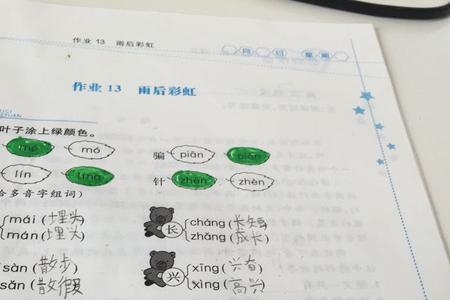 作业 13 雨后彩虹 月 日 星期
作业 13 雨后彩虹
叶子涂上绿颜色。
mó 骗 piān piàn
lín líng 针 zhēn zhèn
给多音字组词)
mái (埋头 cháng (长短)
mán (埋头 长 zhǎng (成长)
sàn (散步 xīng (兴
sǎn (散假 兴 xìng (高兴)